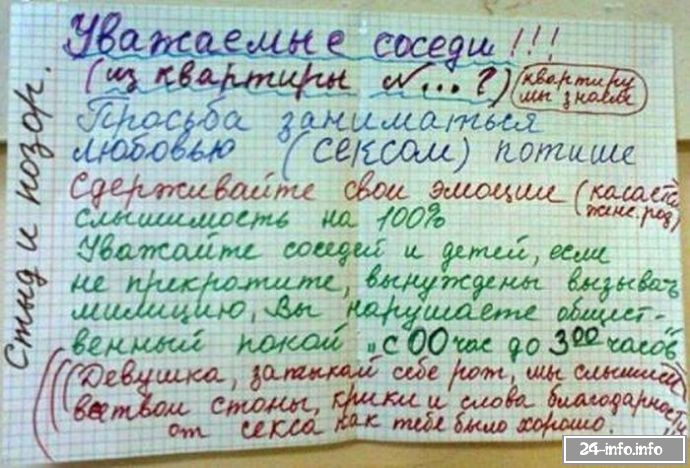 Стыд и позор.
Уважаемые соседи!!!
(из квартиры №...?) (квартиру мы знаем)
Просьба заниматься
любовью (сексом) потише
Сдерживайте свои эмоции (касается женс. род)
слышимость на 100%
Уважайте соседей и детей, если
не прекратите, вынуждены вызывать
милицию, Вы нарушаете общест-
венный покой "с 00 час до 3 00 часов"
Девушка, затыкай себе рот, мы слышим
все твои стоны, крики и слова благодарности
от секса как тебе было хорошо.
24-info.info